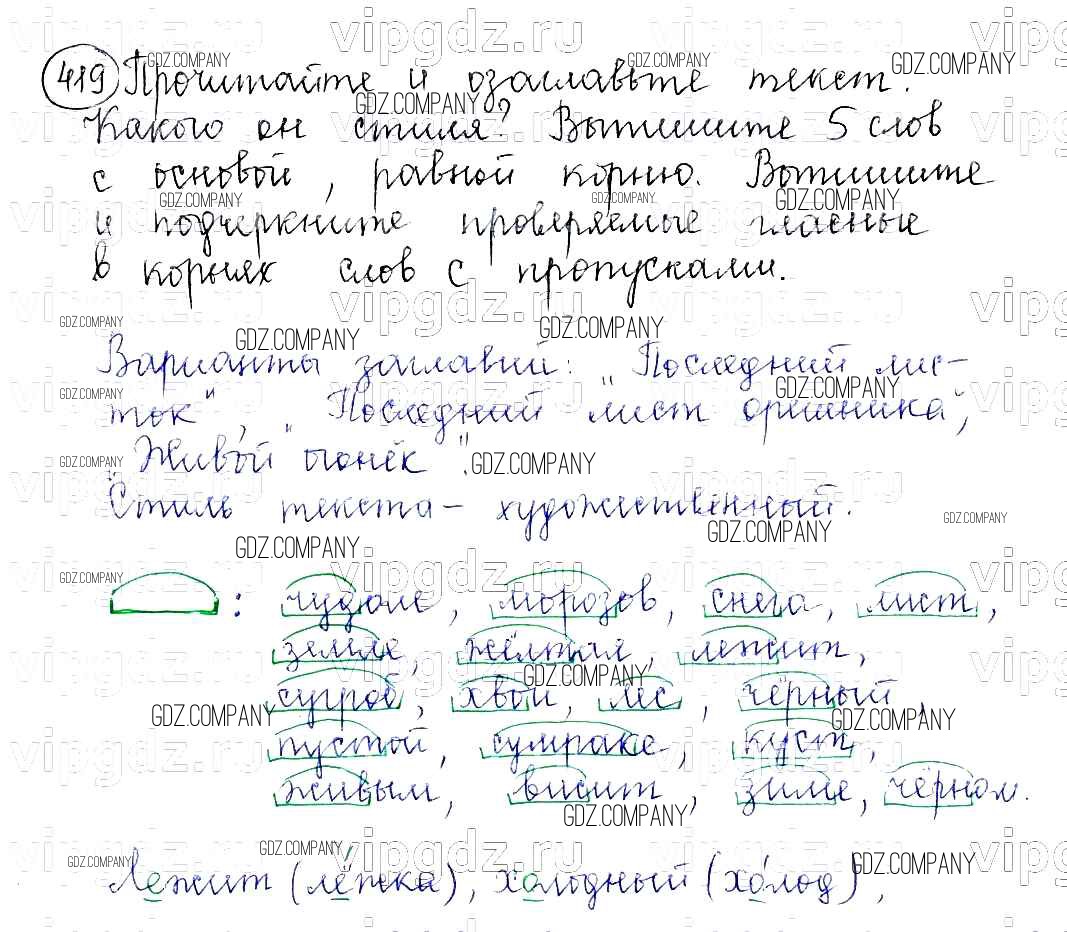 419 Прочитайте и озаглавьте текст.
Какого он стиля? Выпишите 5 слов
с основой, равной корню. Выпишите
и подчеркните проверяемые гласные
в корнях слов с пропусками.
Варианты заглавий: "Последний лис-
ток", "Последний лист орешника",
"Живой огонёк".
Стиль текста – художественный.
: чудом, морозов, снега, лист,
земле, жёлтая, лежит,
сугроб, хвои, лес, чёрный,
пустой, сумраке, куст,
живым, висит, зиме, чёрном.
Лежит (лёжка), холодный (хо́лод),